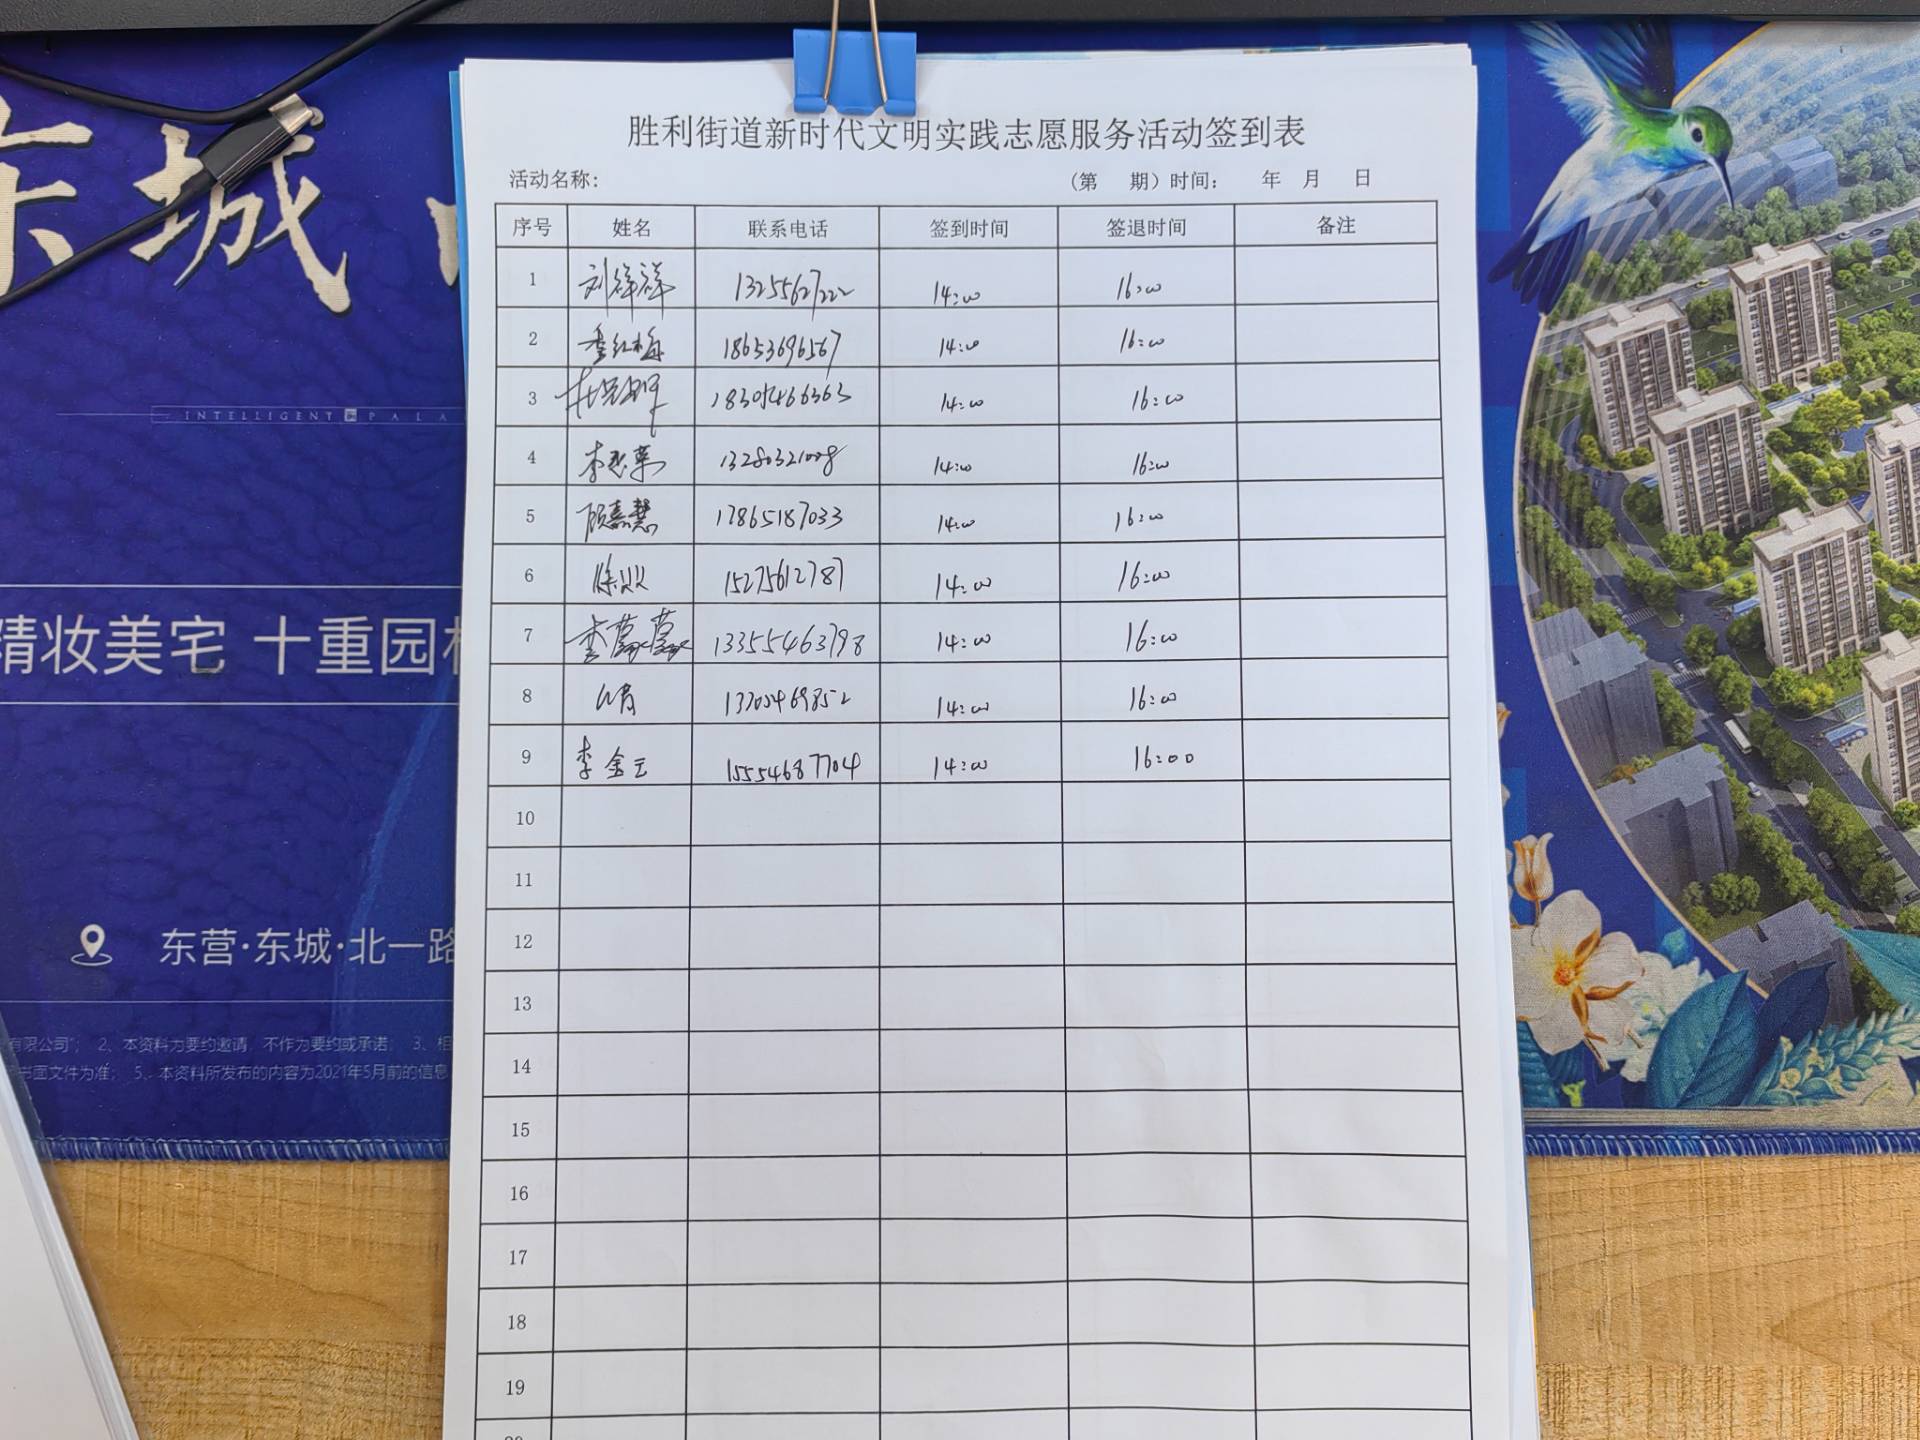 东城
INTELLIGENT PALA
精妆美宅 十重园林
东营·东城·北一路
有限公司"; 2、本资料为要约邀请,不作为要约或承诺; 3、相
书面文件为准; 5、本资料所发布的内容为2021年5月前的信息
胜利街道新时代文明实践志愿服务活动签到表
活动名称: (第 期) 时间: 年 月 日
序号 姓名 联系电话 签到时间 签退时间 备注
1 刘祥祥 13255627222 14:00 16:00
2 季红梅 18653696567 14:00 16:00
3 18305466363 14:00 16:00
4 13280321008 14:00 16:00
5 顾嘉慧 17865187033 14:00 16:00
6 徐 15275612787 14:00 16:00
7 李蒙蒙 13355463798 14:00 16:00
8 14:00 16:00
9 李金云 15554687704 14:00 16:00
10
11
12
13
14
15
16
17
18
19
20